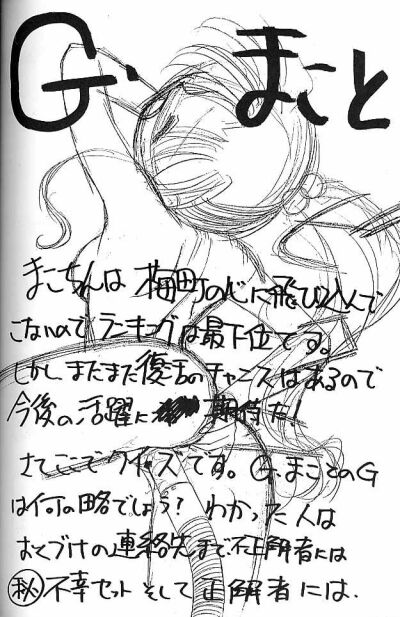 G・まこと
まこちんは梅町の心に飛び込んで
こないのでランキングは最下位です。
しかしまだまだ復活のチャンスはあるので
今後の活躍に期待だ!
さてここでクイズです。G・まことのG
は何の略でしょう? わかった人は
おくづけの連絡先まで不正解者には
㊙不幸セットそして正解者には、